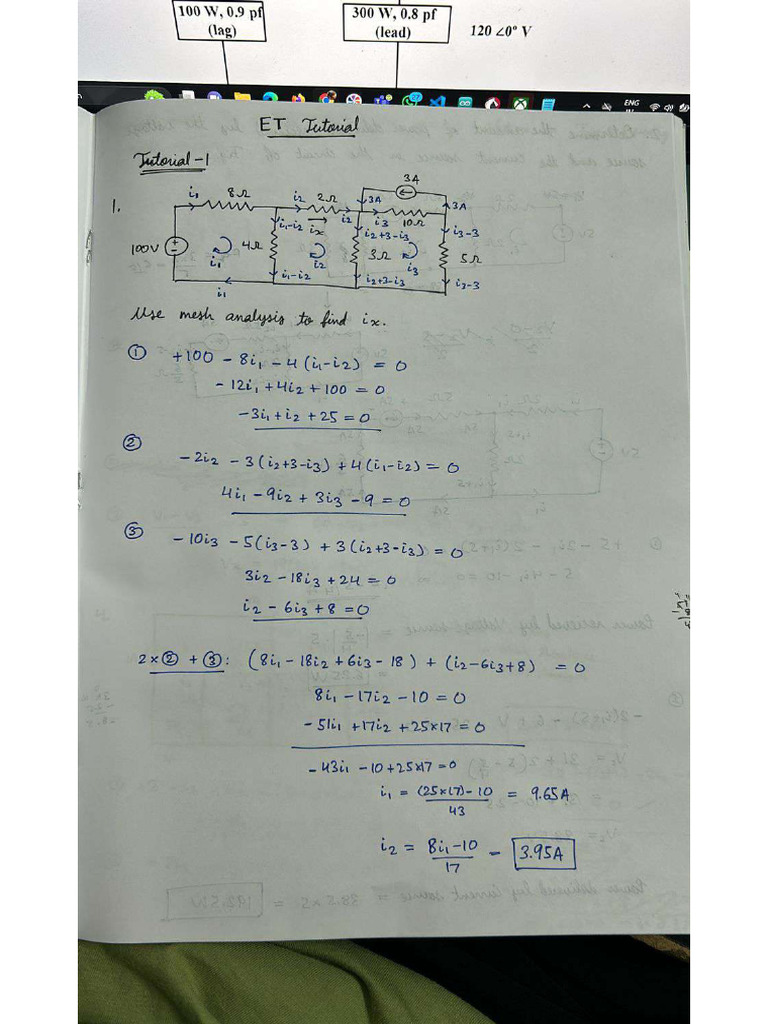 100 W, 0.9 pf
(lag)
300 W, 0.8 pf
(lead)
120 ∠0° V
ENG
IN
ET Tutorial
Tutorial-1
1.
3A
i₁ 8Ω i₂ 2Ω 3A 3A
i₁-i₂ ix i₂ i₃ 10Ω
i₂+3-i₃ i₃-3
100V 4Ω 3Ω 5Ω
i₁ i₂ i₃
i₁-i₂ i₂+3-i₃ i₂-3
i₁
Use mesh analysis to find ix.
① +100 - 8i₁ - 4(i₁-i₂) = 0
- 12i₁ + 4i₂ + 100 = 0
-3i₁ + i₂ + 25 = 0
② -2i₂ - 3(i₂+3-i₃) + 4(i₁-i₂) = 0
4i₁ - 9i₂ + 3i₃ - 9 = 0
③ - 10i₃ - 5(i₃-3) + 3(i₂+3-i₃) = 0
3i₂ - 18i₃ + 24 = 0
i₂ - 6i₃ + 8 = 0
2×② + ③: (8i₁ - 18i₂ + 6i₃ - 18) + (i₂-6i₃+8) = 0
8i₁ - 17i₂ - 10 = 0
- 51i₁ + 17i₂ + 25×17 = 0
- 43i₁ - 10 + 25×17 = 0
i₁ = (25×17) - 10 / 43 = 9.65A
i₂ = 8i₁-10 / 17 = 3.95A